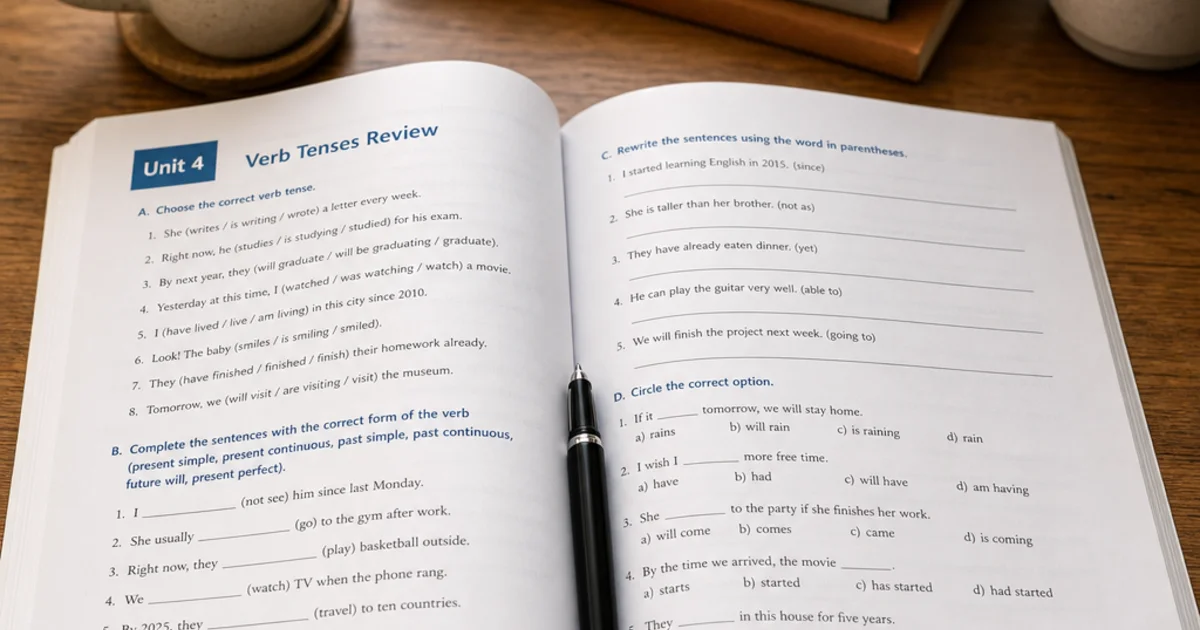 Unit 4
Verb Tenses Review
A. Choose the correct verb tense.
1. She (writes / is writing / wrote) a letter every week.
2. Right now, he (studies / is studying / studied) for his exam.
3. By next year, they (will graduate / will be graduating / graduate).
4. Yesterday at this time, I (watched / was watching / watch) a movie.
5. I (have lived / live / am living) in this city since 2010.
6. Look! The baby (smiles / is smiling / smiled).
7. They (have finished / finished / finish) their homework already.
8. Tomorrow, we (will visit / are visiting / visit) the museum.
B. Complete the sentences with the correct form of the verb
(present simple, present continuous, past simple, past continuous,
future will, present perfect).
1. I ____________ (not see) him since last Monday.
2. She usually ____________ (go) to the gym after work.
3. Right now, they ____________ (play) basketball outside.
4. We ____________ (watch) TV when the phone rang.
5. By 2025, they ____________ (travel) to ten countries.
C. Rewrite the sentences using the word in parentheses.
1. I started learning English in 2015. (since)
2. She is taller than her brother. (not as)
3. They have already eaten dinner. (yet)
4. He can play the guitar very well. (able to)
5. We will finish the project next week. (going to)
D. Circle the correct option.
1. If it ______ tomorrow, we will stay home.
a) rains b) will rain c) is raining d) rain
2. I wish I ________ more free time.
a) have b) had c) will have d) am having
3. She ________ to the party if she finishes her work.
a) will come b) comes c) came d) is coming
4. By the time we arrived, the movie _______.
a) starts b) started c) has started d) had started
5. They ________ in this house for five years.